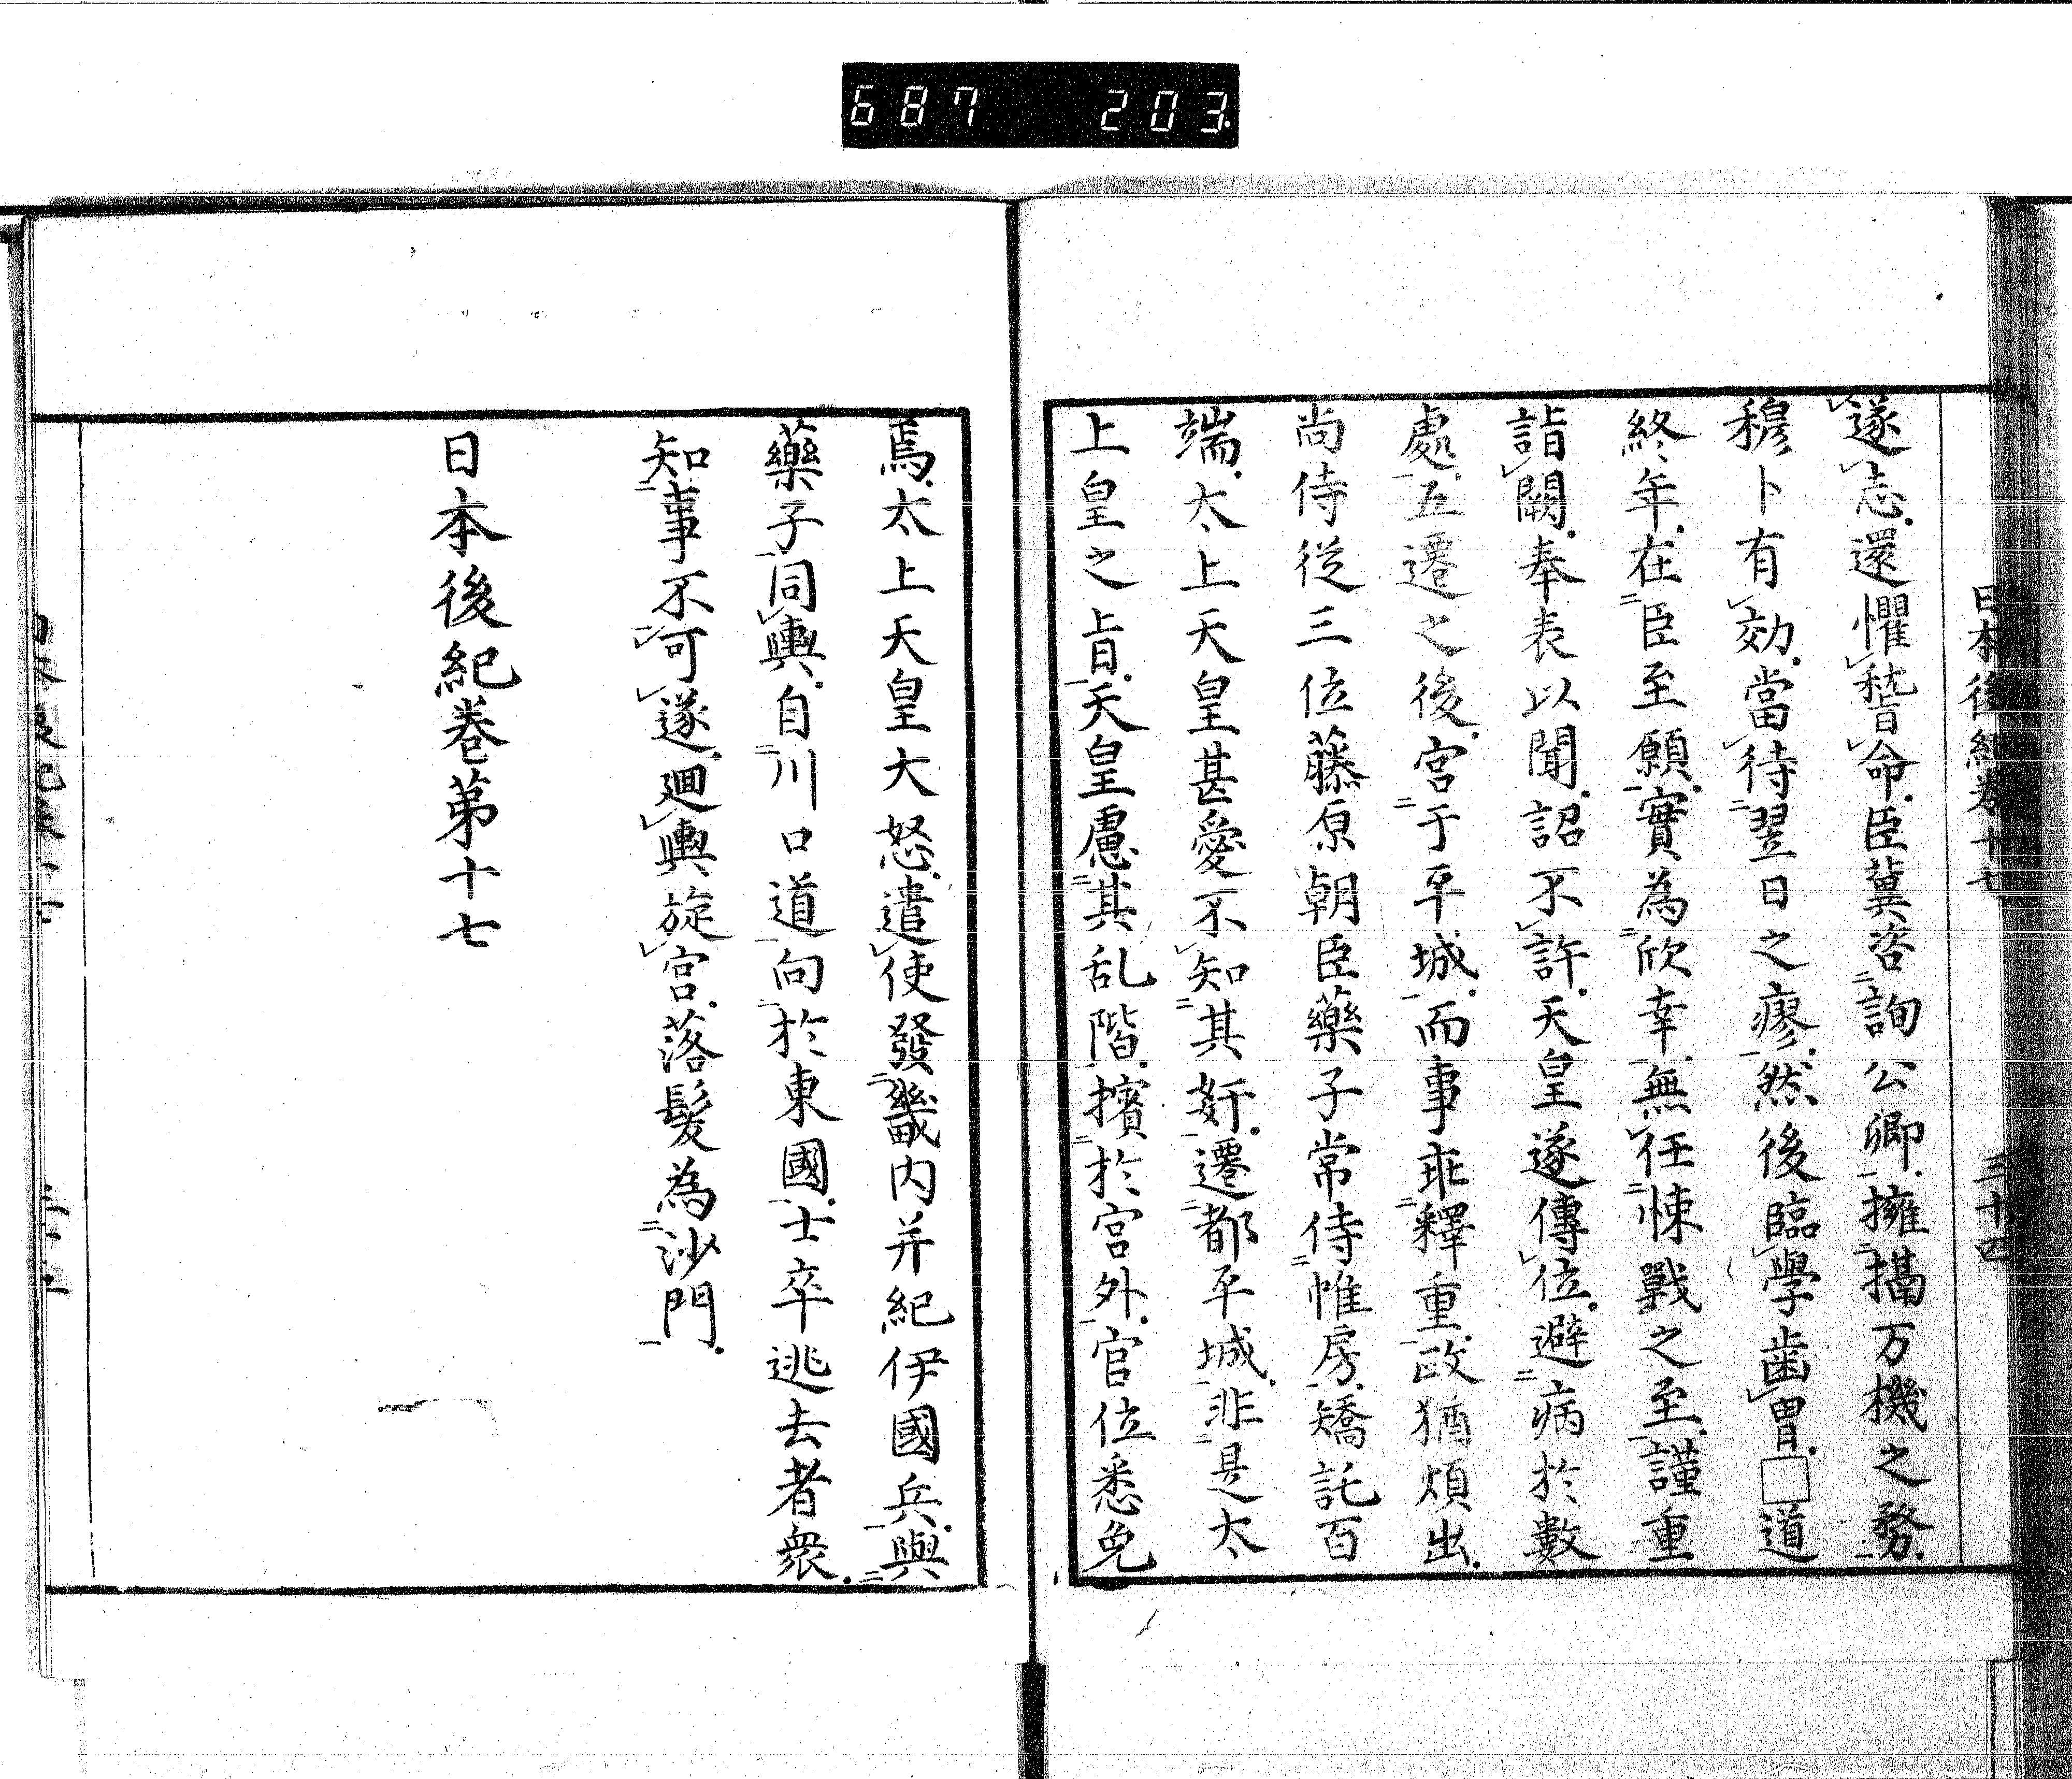 687 203
日本後紀卷十七 三十四
遂志還懼稽命臣冀咨詢公卿擁搨万機之務
穆卜有効當待翌日之瘳然後臨學齒冑□道
終年在臣至願實為欣幸無任悚戰之至謹重
詣闕奉表以聞詔不許天皇遂傳位避病於數
處五遷之後宮于平城而事乖釋重政猶煩出
尚侍從三位藤原朝臣藥子常侍帷房矯託百
端太上天皇甚愛不知其奸遷都平城非是太
上皇之旨天皇慮其乱階擯於宮外官位悉免
焉太上天皇大怒遣使發畿内并紀伊國兵與
藥子同輿自川口道向於東國士卒逃去者衆
知事不可遂廻輿旋宮落髮為沙門
日本後紀卷第十七